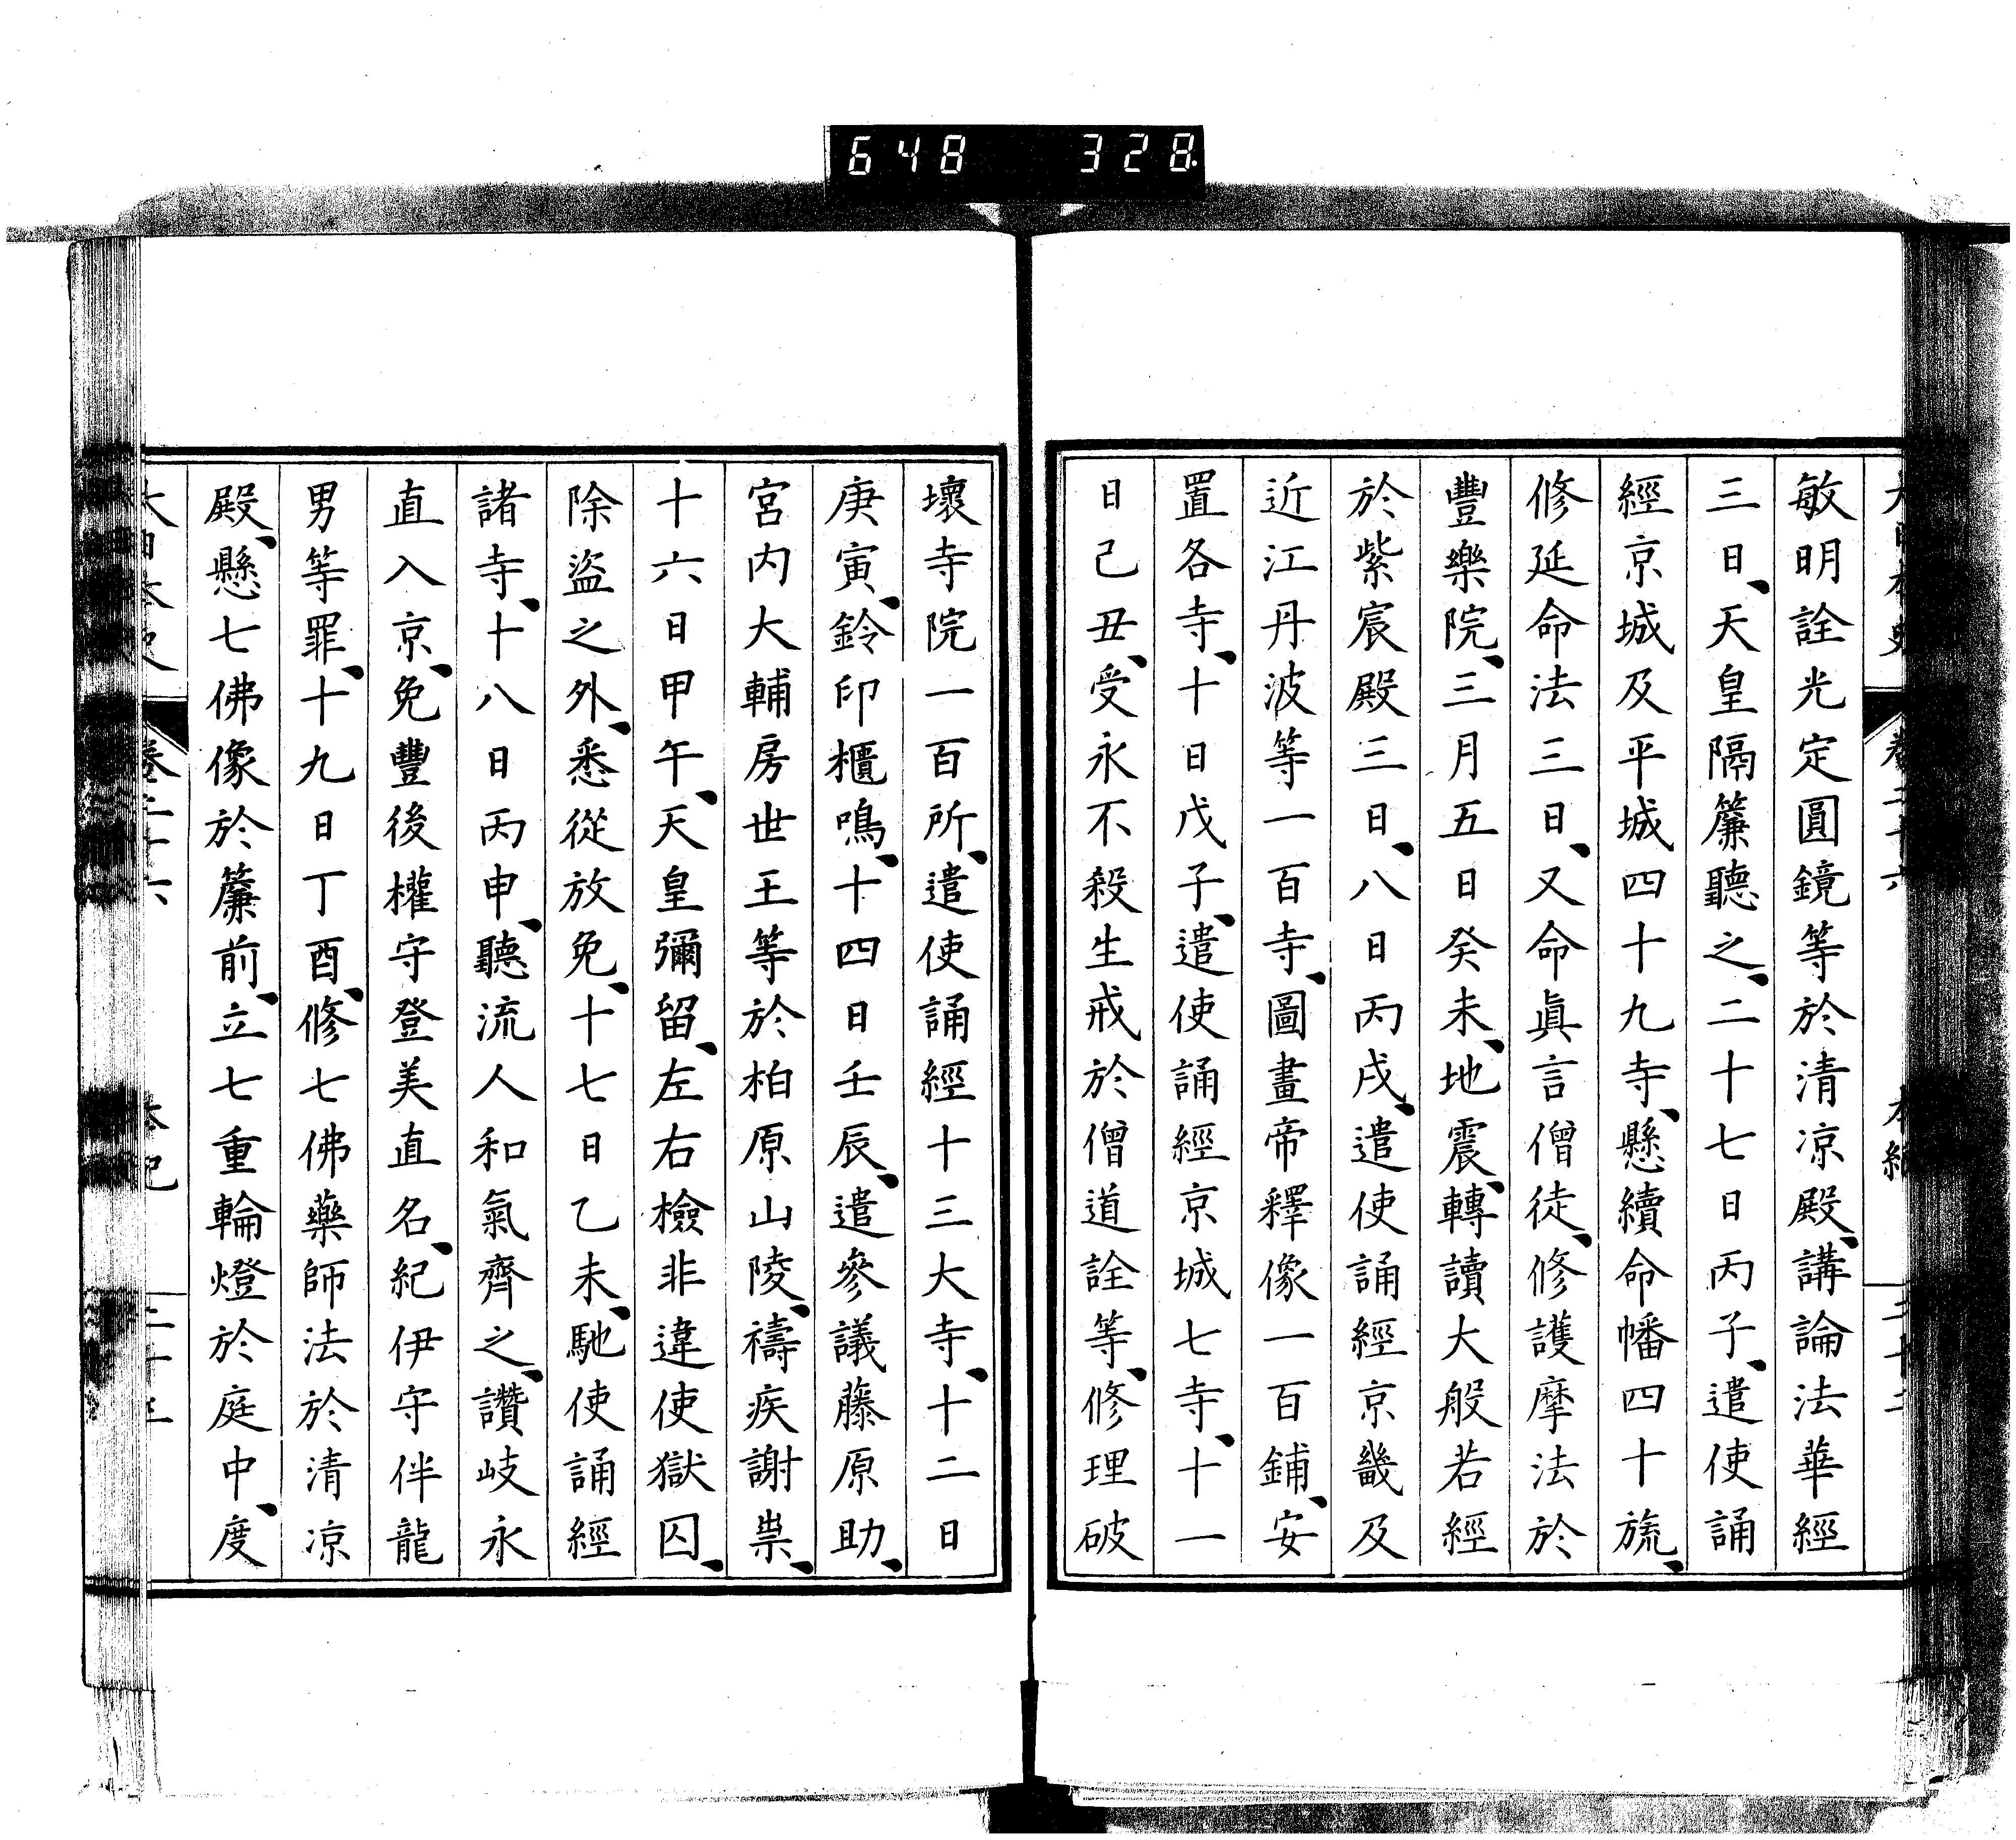 648 328
敏明詮光定圓鏡等於清凉殿、講論法華經
三日、天皇隔簾聽之、二十七日丙子、遣使誦
經京城及平城四十九寺、懸續命幡四十旒、
修延命法三日、又命眞言僧徒、修護摩法於
豐樂院、三月五日癸未、地震、轉讀大般若經
於紫宸殿三日、八日丙戌、遣使誦經京畿及
近江丹波等一百寺、圖畫帝釋像一百鋪、安
置各寺、十日戊子、遣使誦經京城七寺、十一
日己丑、受永不殺生戒於僧道詮等、修理破
壞寺院一百所、遣使誦經十三大寺、十二日
庚寅、鈴印櫃鳴、十四日壬辰、遣參議藤原助、
宮内大輔房世王等於柏原山陵、禱疾謝祟、
十六日甲午、天皇彌留、左右檢非違使獄囚、
除盜之外、悉從放免、十七日乙未、馳使誦經
諸寺、十八日丙申、聽流人和氣齊之、讚岐永
直入京、免豐後權守登美直名、紀伊守伴龍
男等罪、十九日丁酉、修七佛藥師法於清凉
殿、懸七佛像於簾前、立七重輪燈於庭中、度